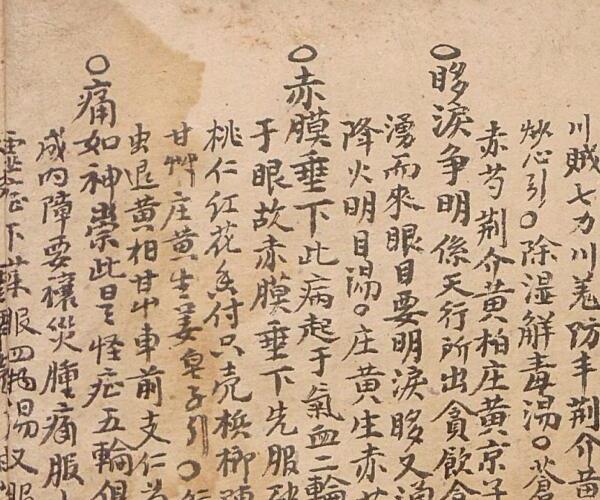 川賊七力川羌防丰荆介黄
炒心引○除湿解毒湯○蒼
赤芍荆介黄柏庄黄京子
○眵淚争明係天行所出貪飲食
湧而來眼目要明淚眵又
降火明目湯○庄黄生赤
○赤膜垂下此病起于氣血二輪
于眼故赤膜垂下先服
桃仁红花付只壳梹榔
甘艸庄黄生姜皂子引○
虫退黄柏甘屮車前支仁
○痛如神祟此是怪症五輪俱
成内障要禳災腫痛服
症下藥服四物湯又服